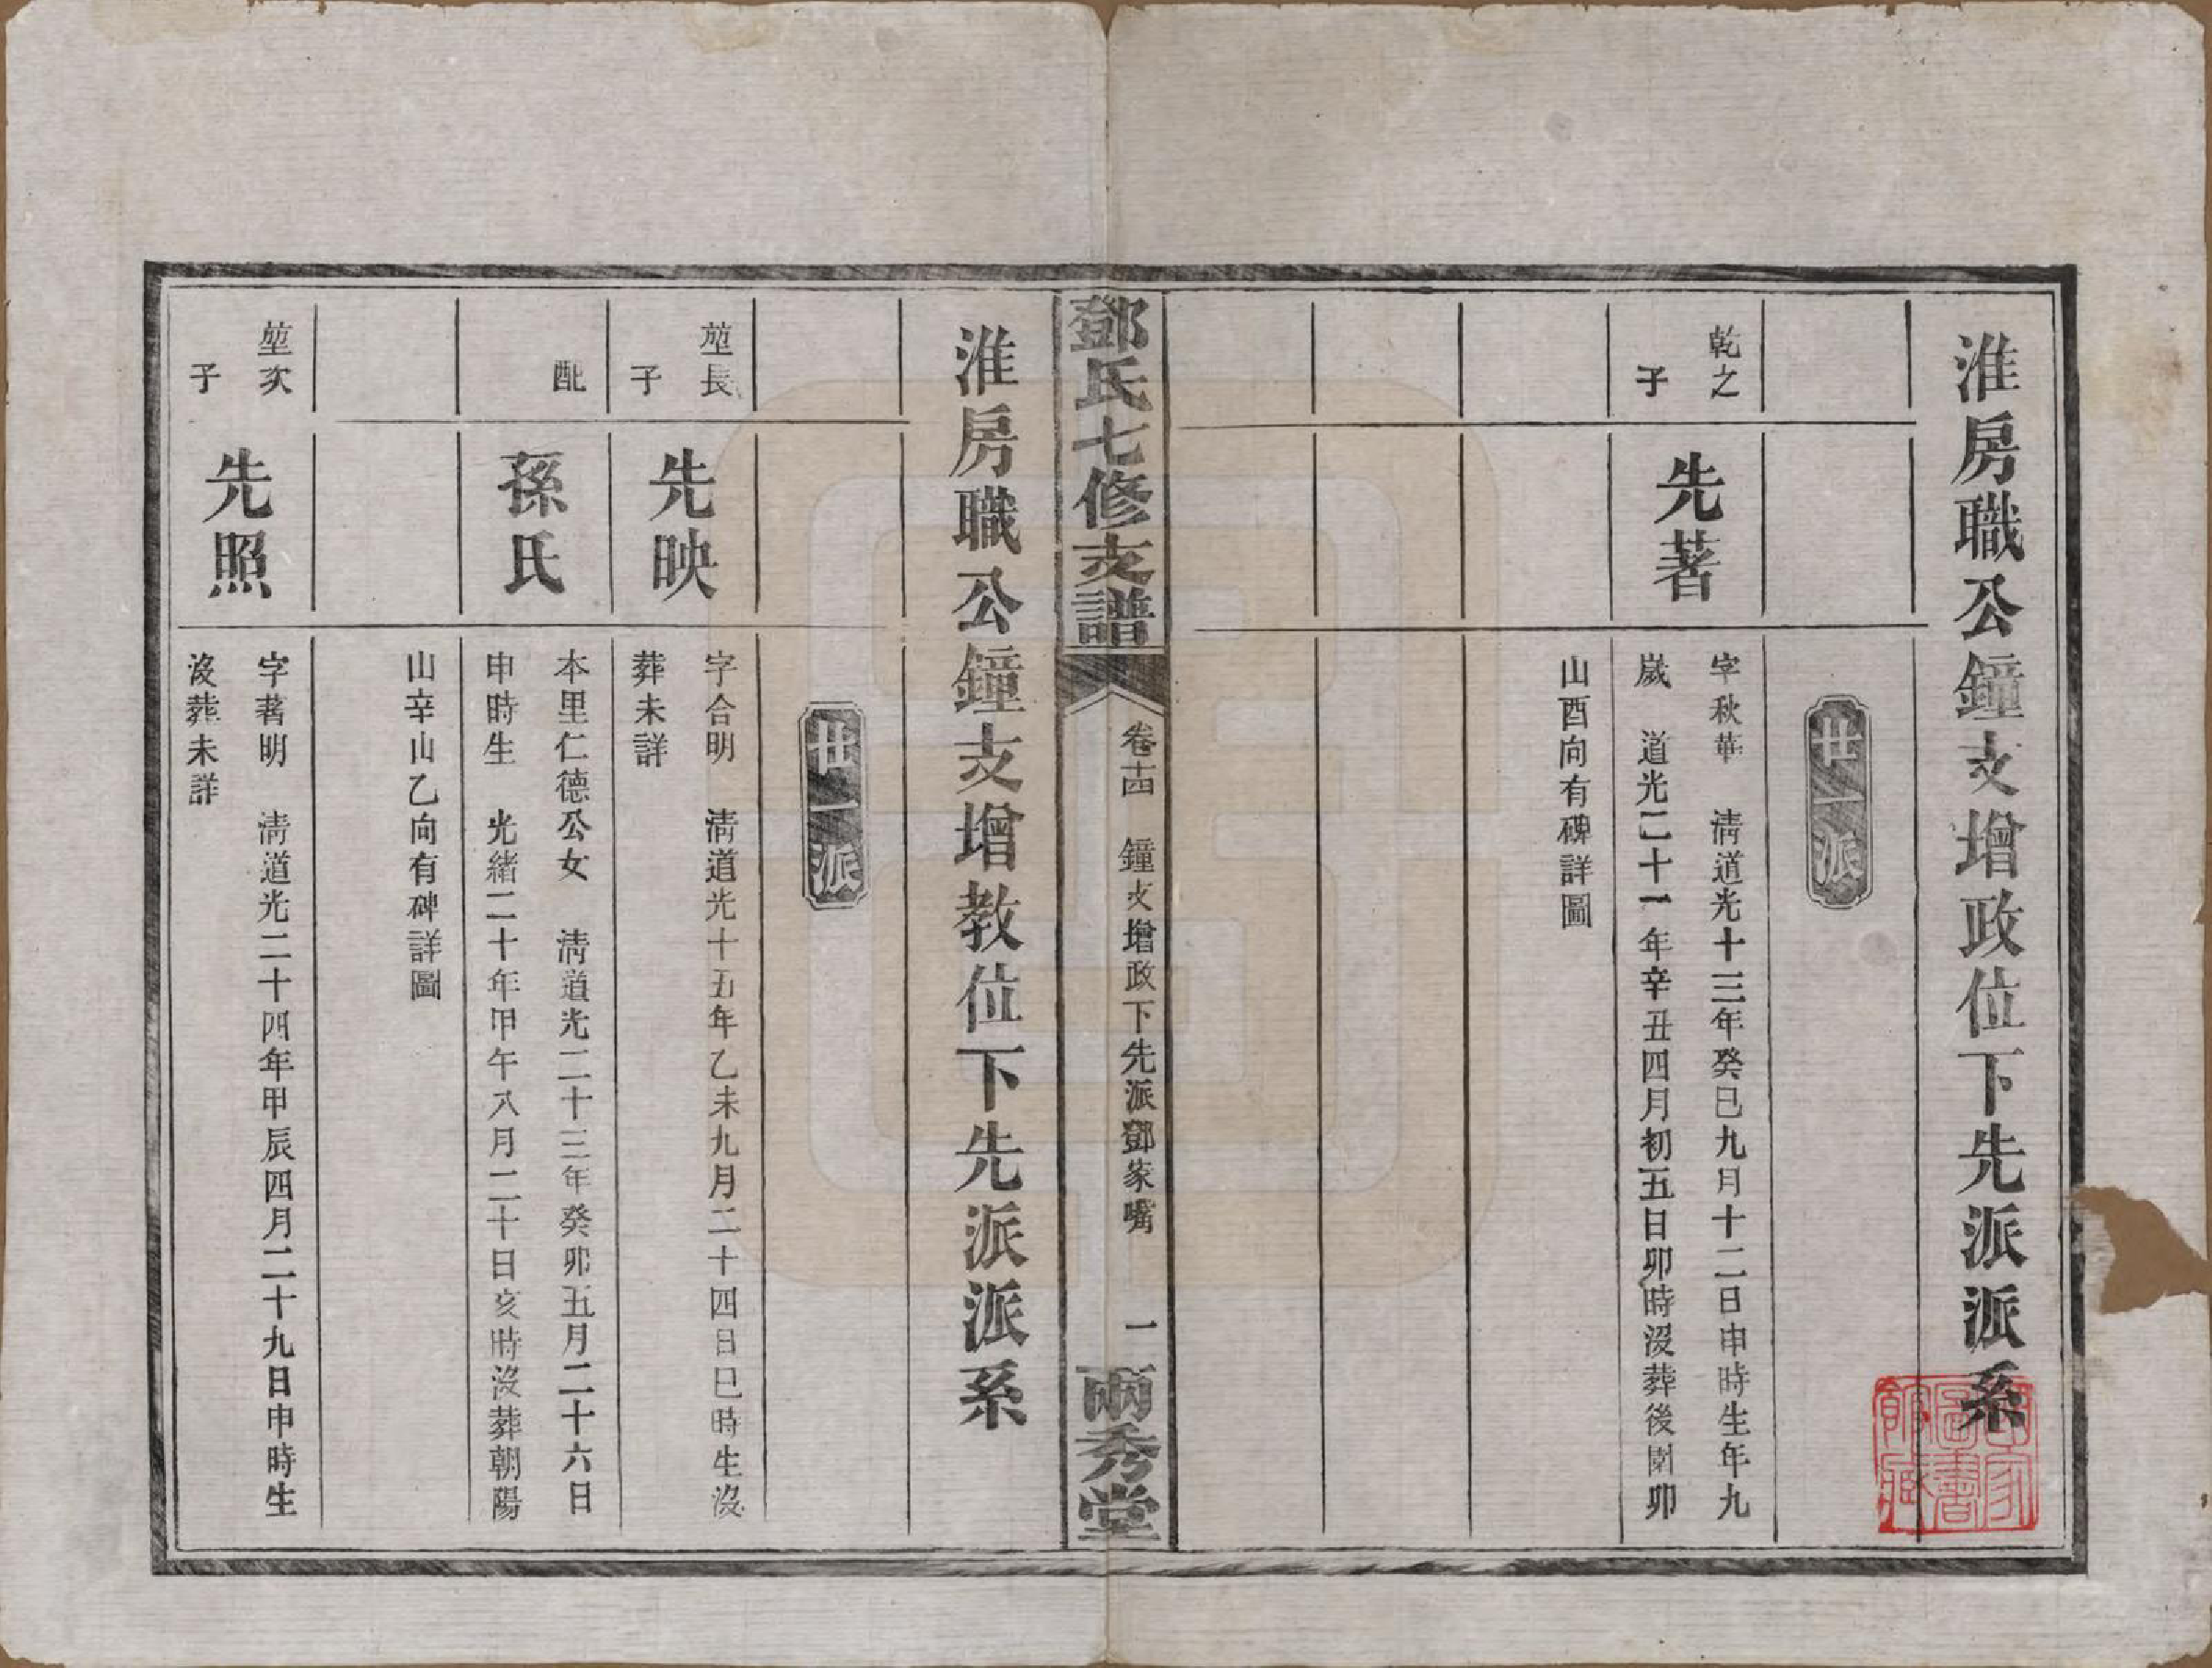 淮房職公鐘支增政位下先派派系
廿一派
乾之
子
先著
字秋華　清道光十三年癸巳九月十二日申時生年九
歲　道光二十一年辛丑四月初五日卯時沒葬後園卯
山酉向有碑詳圖
鄧氏七修支譜
卷十四　鐘支增政下先派鄧家嘴　一
兩秀堂
淮房職公鐘支增教位下先派派系
廿一派
堃長
子
先映
字合明　清道光十五年乙未九月二十四日巳時生沒
葬未詳
配
孫氏
本里仁德公女　清道光二十三年癸卯五月二十六日
申時生　光緒二十年甲午八月二十日亥時沒葬朝陽
山辛山乙向有碑詳圖
堃次
子
先照
字著明　清道光二十四年甲辰四月二十九日申時生
沒葬未詳